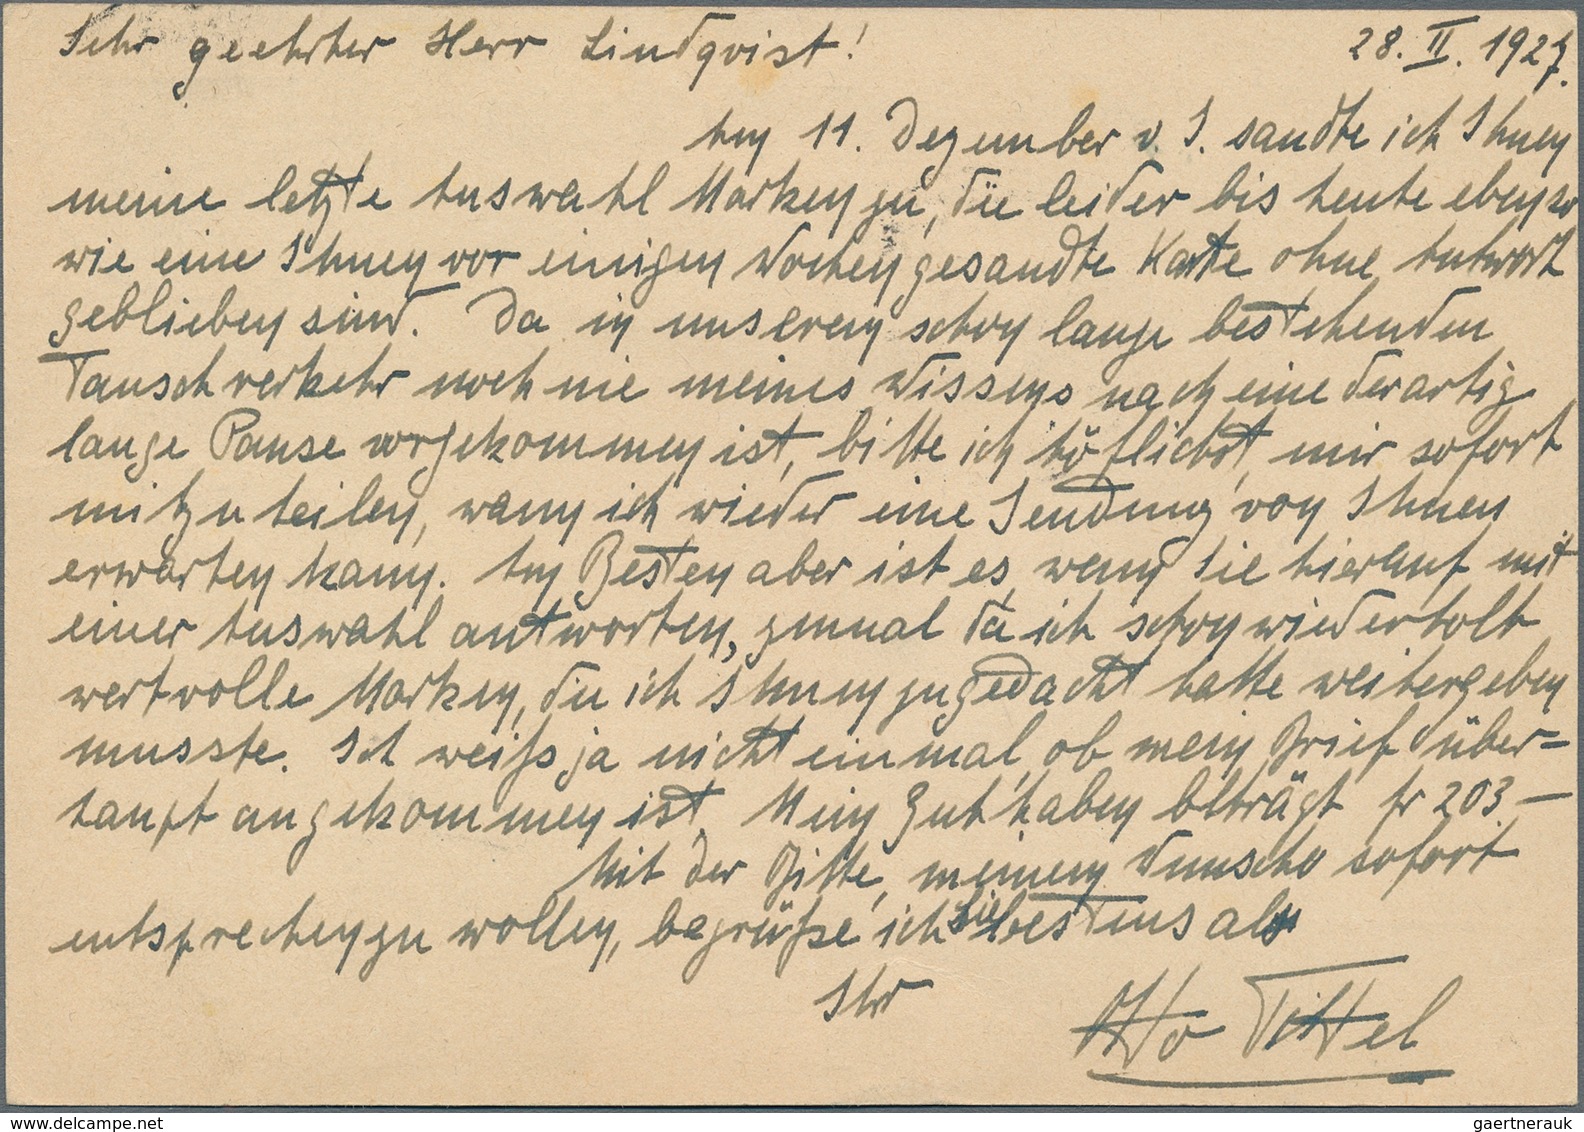 Sehr geehrter Herr Lindqvist! 28. II. 1927.
Am 11. Dezember v. J. sandte ich Ihnen
meine letzte Auswahl Marken zu, die leider bis heute ebenso
wie eine Ihnen vor einigen Wochen gesandte Karte ohne Antwort
geblieben sind. Da in unserem schon lange bestehenden
Tauschverkehr noch nie meines Wissens nach eine derartig
lange Pause vorgekommen ist, bitte ich höflichst, mir sofort
mitzuteilen, wann ich wieder eine Sendung von Ihnen
erwarten kann. Am Besten aber ist es, wenn Sie hierauf mit
einer Auswahl antworten, zumal da ich schon wiederholt
wertvolle Marken, die ich Ihnen zugedacht hatte weitergeben
musste. Ich weiß ja nicht einmal, ob mein Brief über-
haupt angekommen ist. Mein Guthaben beträgt fr 203.—
Mit der Bitte, meinem Wunsche sofort
entsprechen zu wollen, begrüße ich Sie bestens als
Ihr Otto Tittel
gaertnerauk
www.delcampe.net